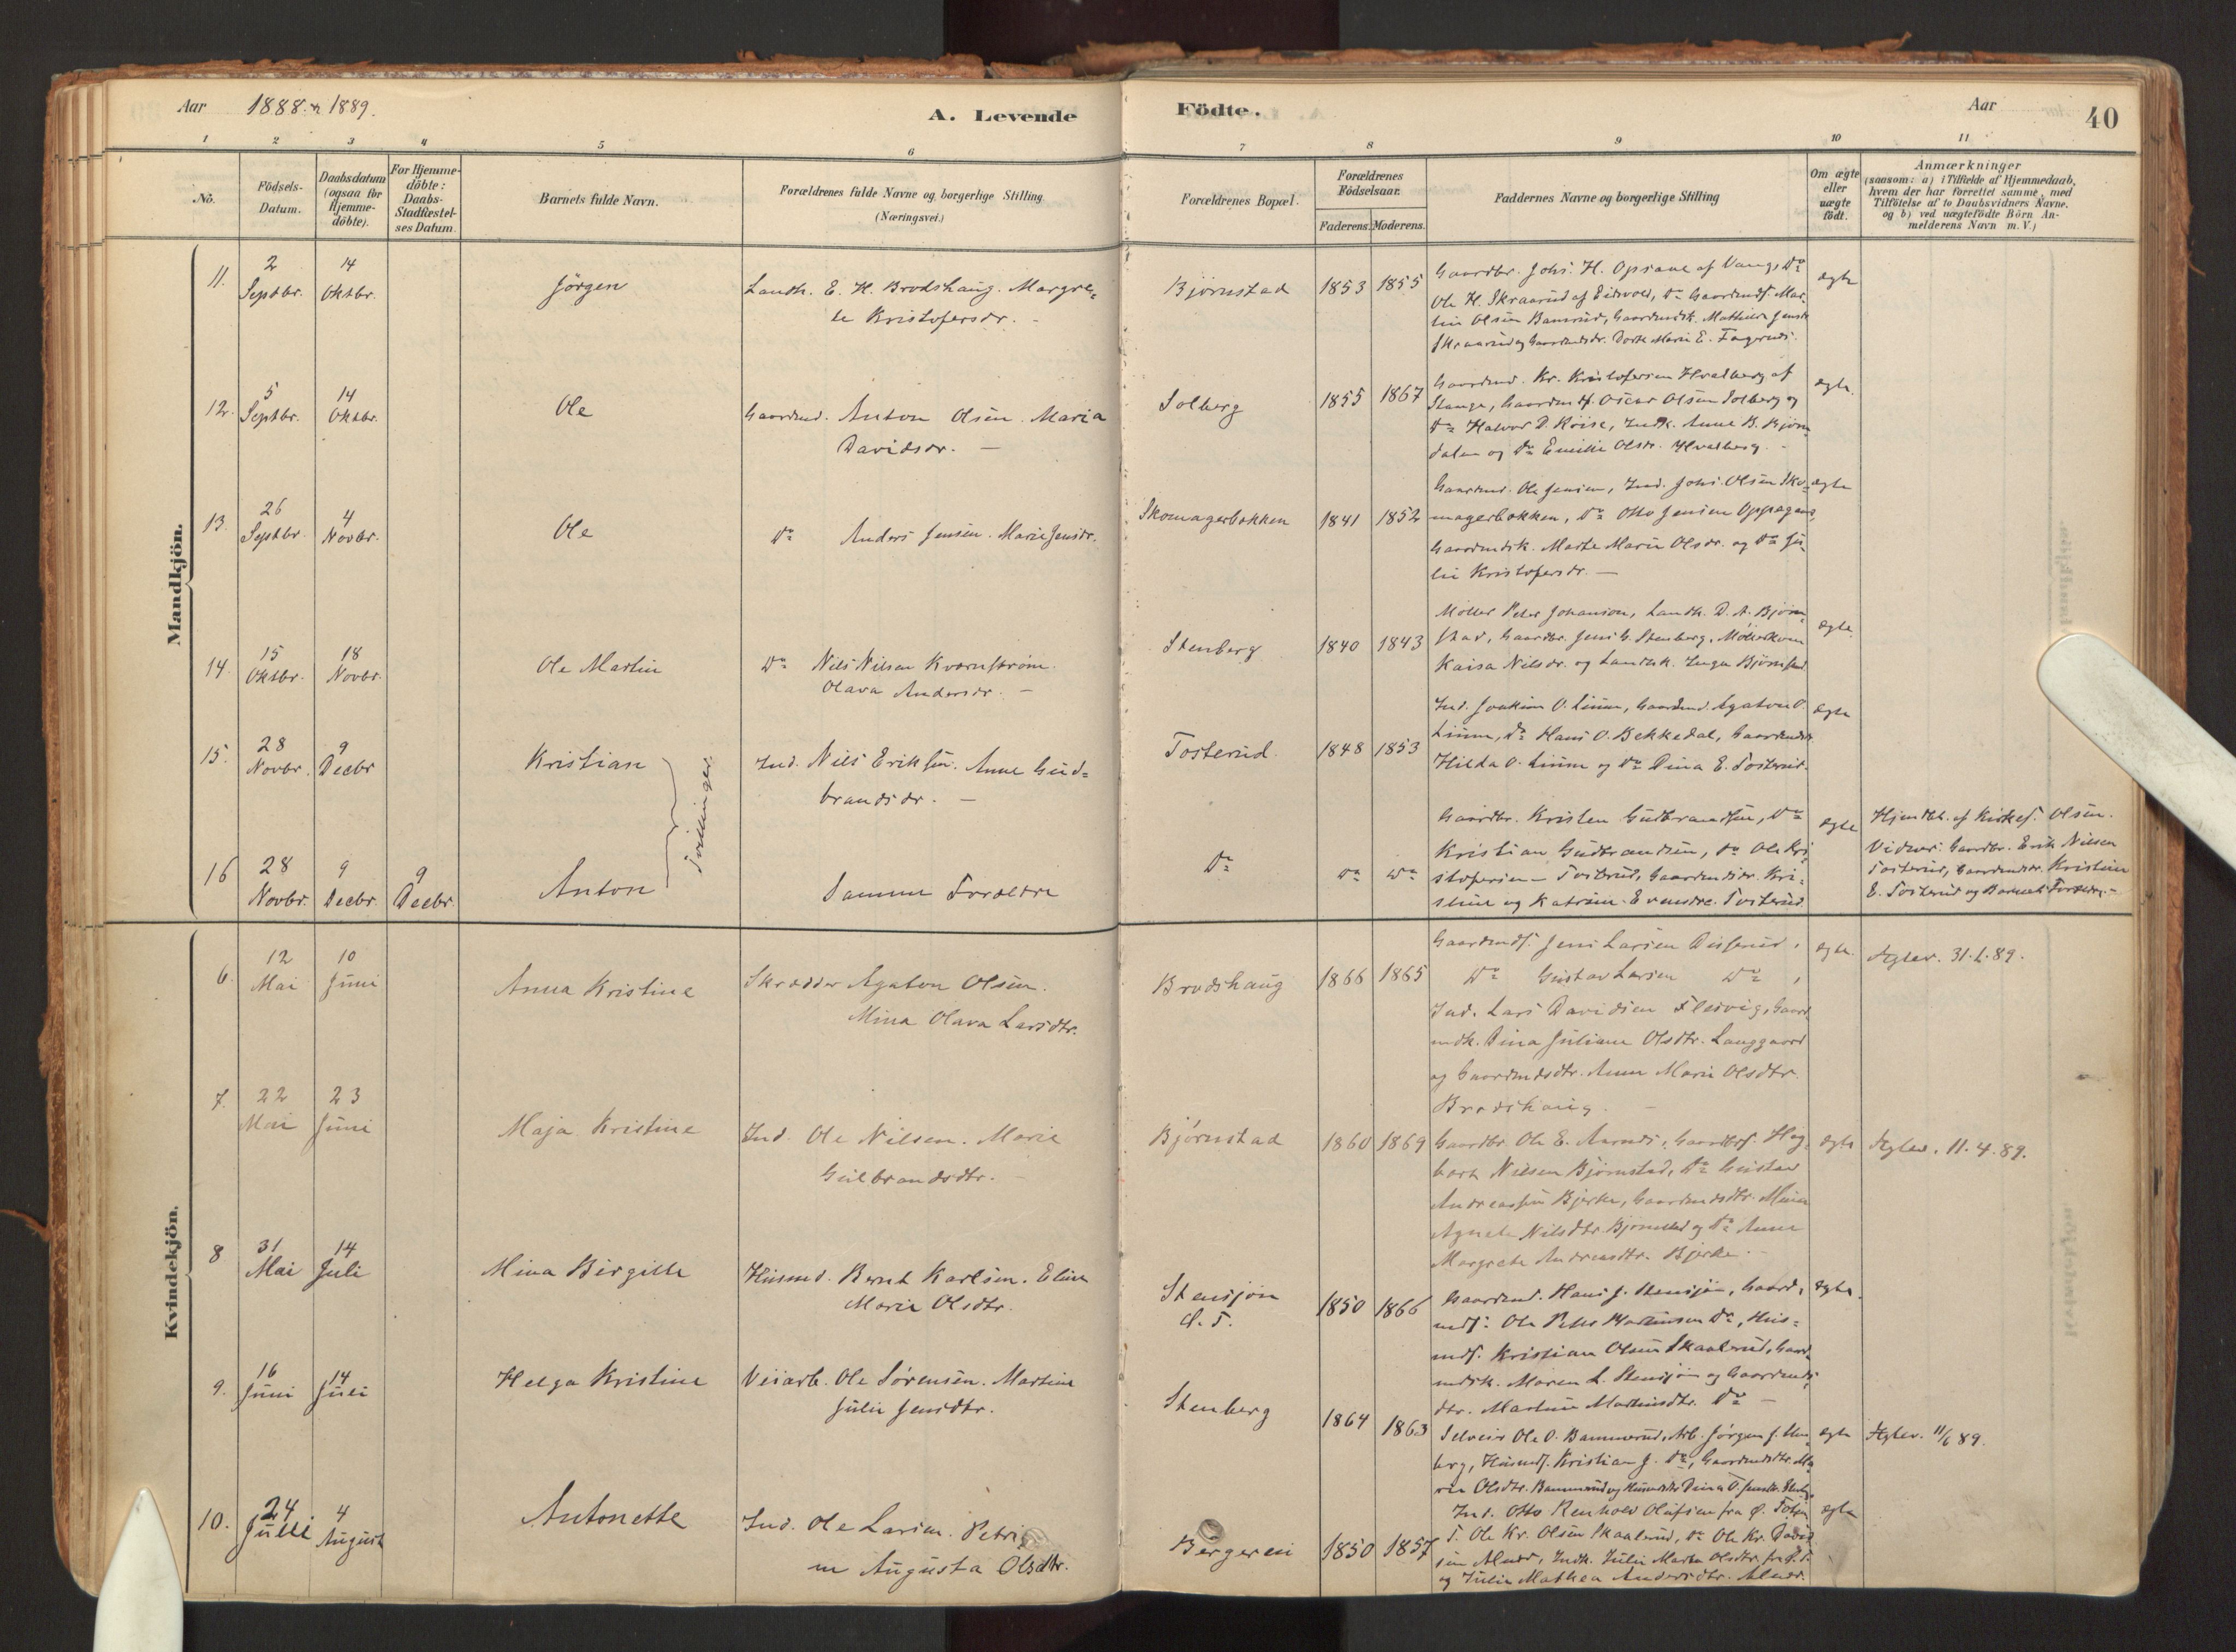 Aar 1888 & 1889.
A. Levende
Födte.
Aar
40
1 2 3 4 5 6 7 8 9 10 11
No.
Födsels-
Datum.
Daabsdatum
(ogsaa for
Hjemme-
döbte).
For Hjemme-
döbte:
Daabs-
Stadfæstel-
ses Datum.
Barnets fulde Navn.
Forældrenes fulde Navne og borgerlige Stilling
(Næringsvei.)
Forældrenes Bopæl.
Forældrenes
Födselsaar.
Faderens. Moderens.
Faddernes Navne og borgerlige Stilling
Om ægte
eller
uægte
födt.
Anmærkninger
(saasom: a) i Tilfælde af Hjemmedaab,
hvem der har forrettet samme, med
Tilföielse af to Daabsvidners Navne,
og b) ved uægtefödte Börn An-
melderens Navn m. V.)
Mandkjön.
11.
2
Septbr.
14
Oktbr.
Jörgen
Landh. E. H. Brodshaug. Margre-
te Kristofersdr. -
Bjørnstad
1853 1855
Gaardbr. Johs. H. Opsane af Vang, Do
Ole H. Skraarud af Eidsvold, Do Gaardmds. Mar-
tin Olsen Bamrud, Gaardmdsk. Mathilde Jensdr
Skraarud og Gaardmdsdr. Dorte Marie E. Fagerud.
ægte
12.
5
Septbr.
14
Oktbr.
Ole
Gaardmd. Anton Olsen. Maria
Davidsdr. -
Solberg
1855 1867
Gaardmd. Kr. Kristofersen Hvalberg af
Stange, Gaardmds. Oscar Olsen Solberg og
Do Halvor D. Koise, Indk. Anne B. Bjørn-
dalen og Do Emilie Olsdr. Hvalberg. -
ægte.
13.
26
Septbr.
4
Novbr.
Ole
Do Anders Jensen. Marie Jensdr.
Skomagerbakken
1841 1852
Gaardmd. Ole Jensen, Ind. Johs. Olsen Sko-
magerbakken, Do Otto Jensen Oppegaard,
Gaardmdsk. Marte Marie Olsdr. og Do Ju-
lie Kristofersdr. -
ægte
14.
15
Oktbr.
18
Novbr.
Ole Martin
Do Nils Nilsen Kvarnstrøm.
Olava Andersdr. -
Stenberg
1840 1843
Møller Peter Johansen, Landh. D. A. Bjørn-
stad, Gaardbr. Jens G. Stenberg, Møllerkone
Kaisa Nilsdr. og Landhk. Inga Bjørnstad
ægte.
15.
28
Novbr.
9
Decbr
Kristian
Tvillinger.
Ind. Nils Eriksen. Anne Gud-
brandsdr. -
Tosterud.
1848 1853
Ind. Joakim O. Linne, Gaardmd. Agaton O.
Linne, Do Hans O. Bekkedal, Gaardmdsdr.
Hilda O. Linne og Do Dina E. Tosterud.
ægte
16
28
Novbr.
9
Decbr.
9
Decbr.
Anton
Samme Forældre
Do
Do Do
Gaardbr. Kristen Gudbrandsen, Do
Kristian Gudbrandsen, Do Ole Kri-
stofersen - Tosterud, Gaardmdsdr. Kri-
stine og Katrine Evensdr. Tosterud.
ægte
Hjemdbt. af Kirkes. Olsen.
Vidner: Gaardbr. Erik Nilsen
Tosterud, Gaardmdsdr. Kristine
E. Tosterud og Barnets Forældre. -
Kvindekjön.
6.
12
Mai
10
Juni
Anna Kristine
Skrædder Agaton Olsen.
Mina Olava Larsdtr.
Brodshaug
1866 1865
Gaardmds. Jens Larsen Disserud,
Do Gustav Larsen Do,
Ind. Lars Davidsen Flesvig, Gaard-
mdk. Dina Juliane Olsdtr. Langgaard
og Gaardmdsdtr. Anne Marie Olsdtr.
Brodshaug. -
ægte.
Fglev. 31.1.89.
7.
22
Mai
23
Juni
Maja Kristine
Ind. Ole Nilsen. Marie
Gulbrandsdtr. -
Bjørnstad
1860 1869
Gaardbr. Ole E. Aarnes, Gaardbrs. Hag-
bart Nilsen Bjørnstad, Do Gustav
Andreassen Bjerke, Gaardmdsdtr. Mina
Agnete Nilsdtr. Bjørnstad og Do Anne
Margrete Andreasdtr. Bjerke. -
ægte
Fglev. 11.4.89.
8
31
Mai
14
Juli
Mina Birgitte
Husmd. Bernt Karlsen. Eline
Marie Olsdtr.
Stensjøn
Ø. T.
1850 1866
Gaardmd. Hans J. Stensjøn, Gaard-
mds. Ole Peter Martinsen Do, Hus-
mds. Kristian Olsen Skaalrud, Gaard-
mdsk. Maren L. Stensjøn og Gaardmds-
dtr. Martine Martinsdtr. Do -
ægte.
9.
16
Juni
14
Juli
Helga Kristine
Veiarb. Ole Sørensen. Martine
Julie Jensdtr.
Stenberg
1864 1863
Selveir Ole O. Bammerud, Arb. Jørgen J. Sten-
berg, Husmds. Kristian J. Do, Gaardmdsdtr. Ma-
ren Olsdtr. Bammerud og Husmdsdtr. Dina O.
ægte
Fglev. 11/6 89.
10.
24
Juli
4
August
Antonette
Ind. Ole Larsen. Petri-
ne Augusta Olsdtr.
Bergereie
1850 1857
Ind. Otto Renhold Olafsen fra Ø. Toten
S. Ole Kr. Olsen Skaalrud, Do Ole Kr. David-
sen Alner, Indk. Julie Marta Olsdtr. fra Ø. T.
og Julie Mathea Andersdtr. Alner.
ægte